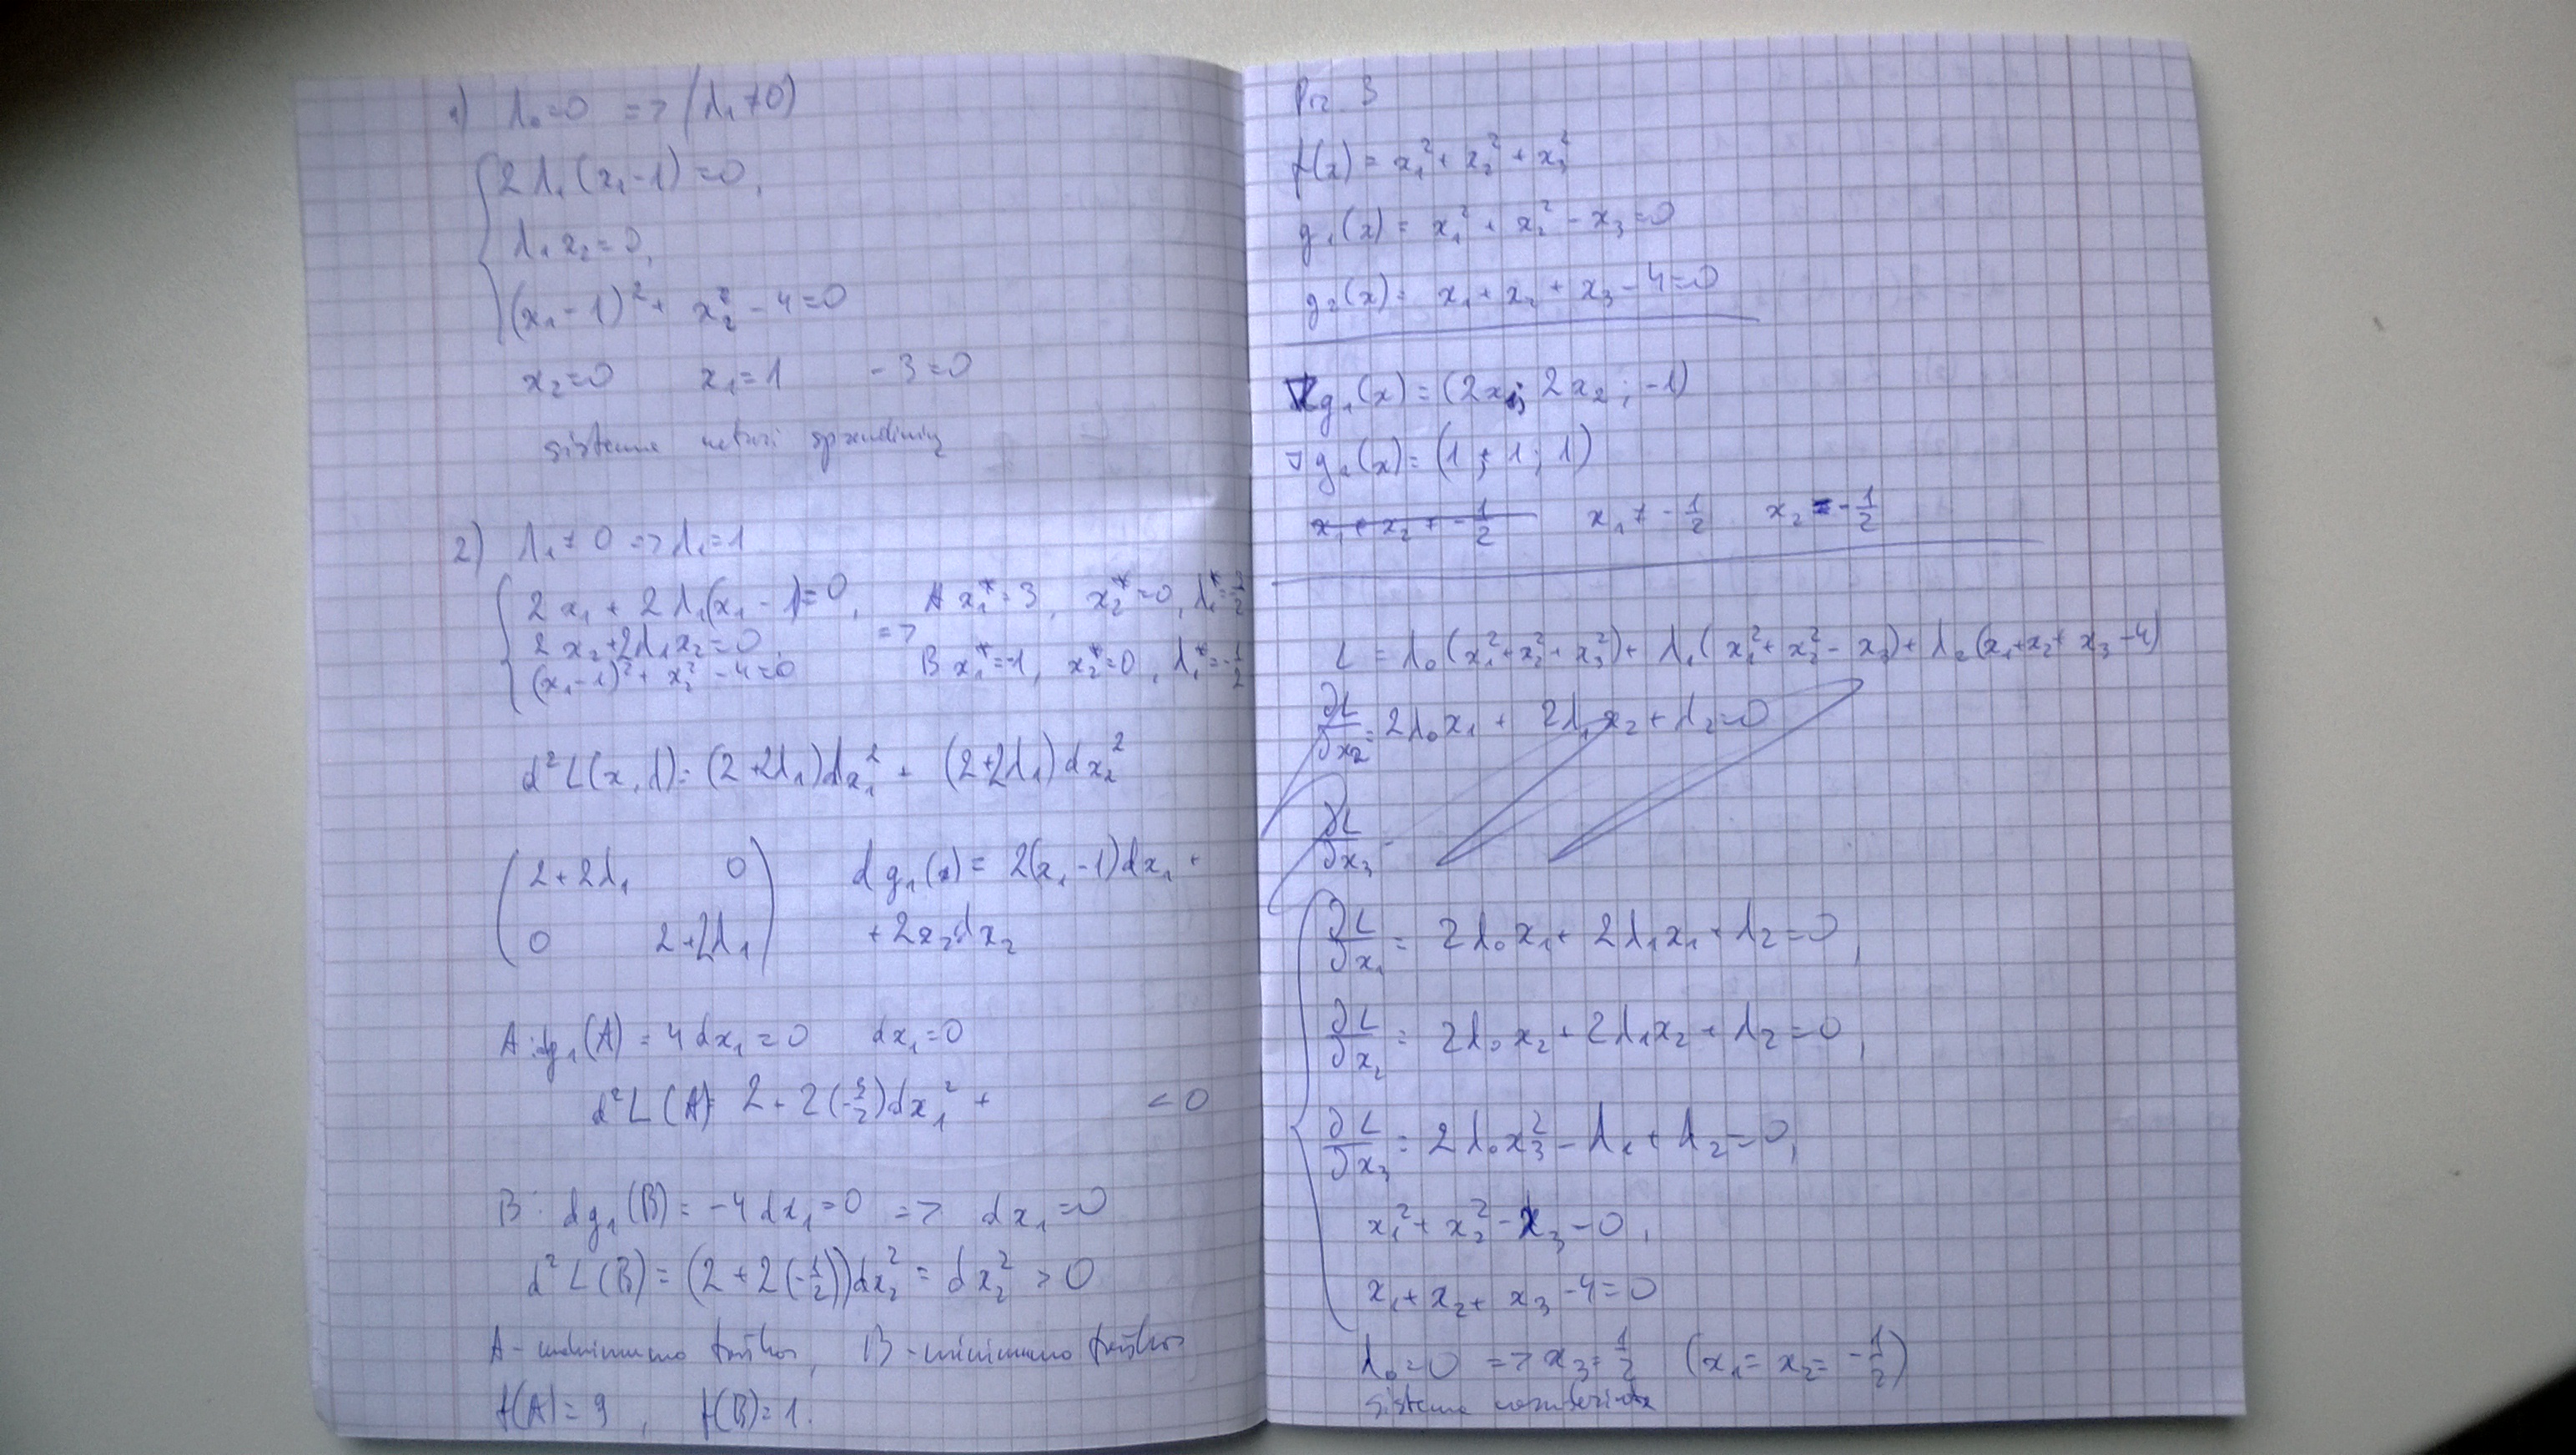 1) λ₀=0 => (λ₁≠0)
2λ₁(x₁-1)=0,
λ₁x₂=0,
(x₁-1)²+ x₂² - 4=0
x₂=0 x₁=1 -3=0
sistema neturi sprendinių
2) λ₁≠0 => λ₁=1
2x₁ + 2λ₁(x₁-1)=0, A x₁*=3, x₂*=0, λ₁*=-3/2
2x₂+2λ₁x₂=0 =>
(x₁-1)²+ x₂² -4=0 B x₁*=-1, x₂*=0, λ₁*=-1/2
d²L(x,λ)= (2+2λ₁)dx₁² + (2+2λ₁)dx₂²
2+2λ₁ 0 dg₁(x)= 2(x₁-1)dx₁ +
0 2+2λ₁ +2x₂dx₂
A: dg₁(A) = 4dx₁=0 dx₁=0
d²L(A) 2+2(-3/2)dx₁² + <0
B: dg₁(B)= -4dx₁=0 => dx₁=0
d²L(B)= (2+2(-1/2))dx₂² = dx₂² >0
A- maksimumo taškas, B-minimumo taškas
f(A)=9, f(B)=1.
Pvz 3
f(x)= x₁²+ x₂² + x₃²
g₁(x)= x₁² + x₂² - x₃=0
g₂(x)= x₁+x₂ + x₃-4=0
∇g₁(x)=(2x₁; 2x₂; -1)
∇g₂(x)=(1; 1; 1)
x₁≠-1/2 x₂=-1/2
L = λ₀(x₁²+x₂²+x₃²)+ λ₁(x₁²+x₂²- x₃)+ λ₂(x₁+x₂+ x₃-4)
∂L/∂x₂= 2λ₀x₁ + 2λ₁x₂+λ₂=0
∂L/∂x₃=
∂L/∂x₁= 2λ₀x₁+ 2λ₁x₁+λ₂=0,
∂L/∂x₂= 2λ₀x₂+2λ₁x₂+λ₂=0,
∂L/∂x₃= 2λ₀x₃²-λ₁+λ₂=0,
x₁²+x₂²-x₃=0,
x₁+x₂+ x₃-4=0
λ₀=0 => x₃=1/2 (x₁=x₂= -1/2)
sistema